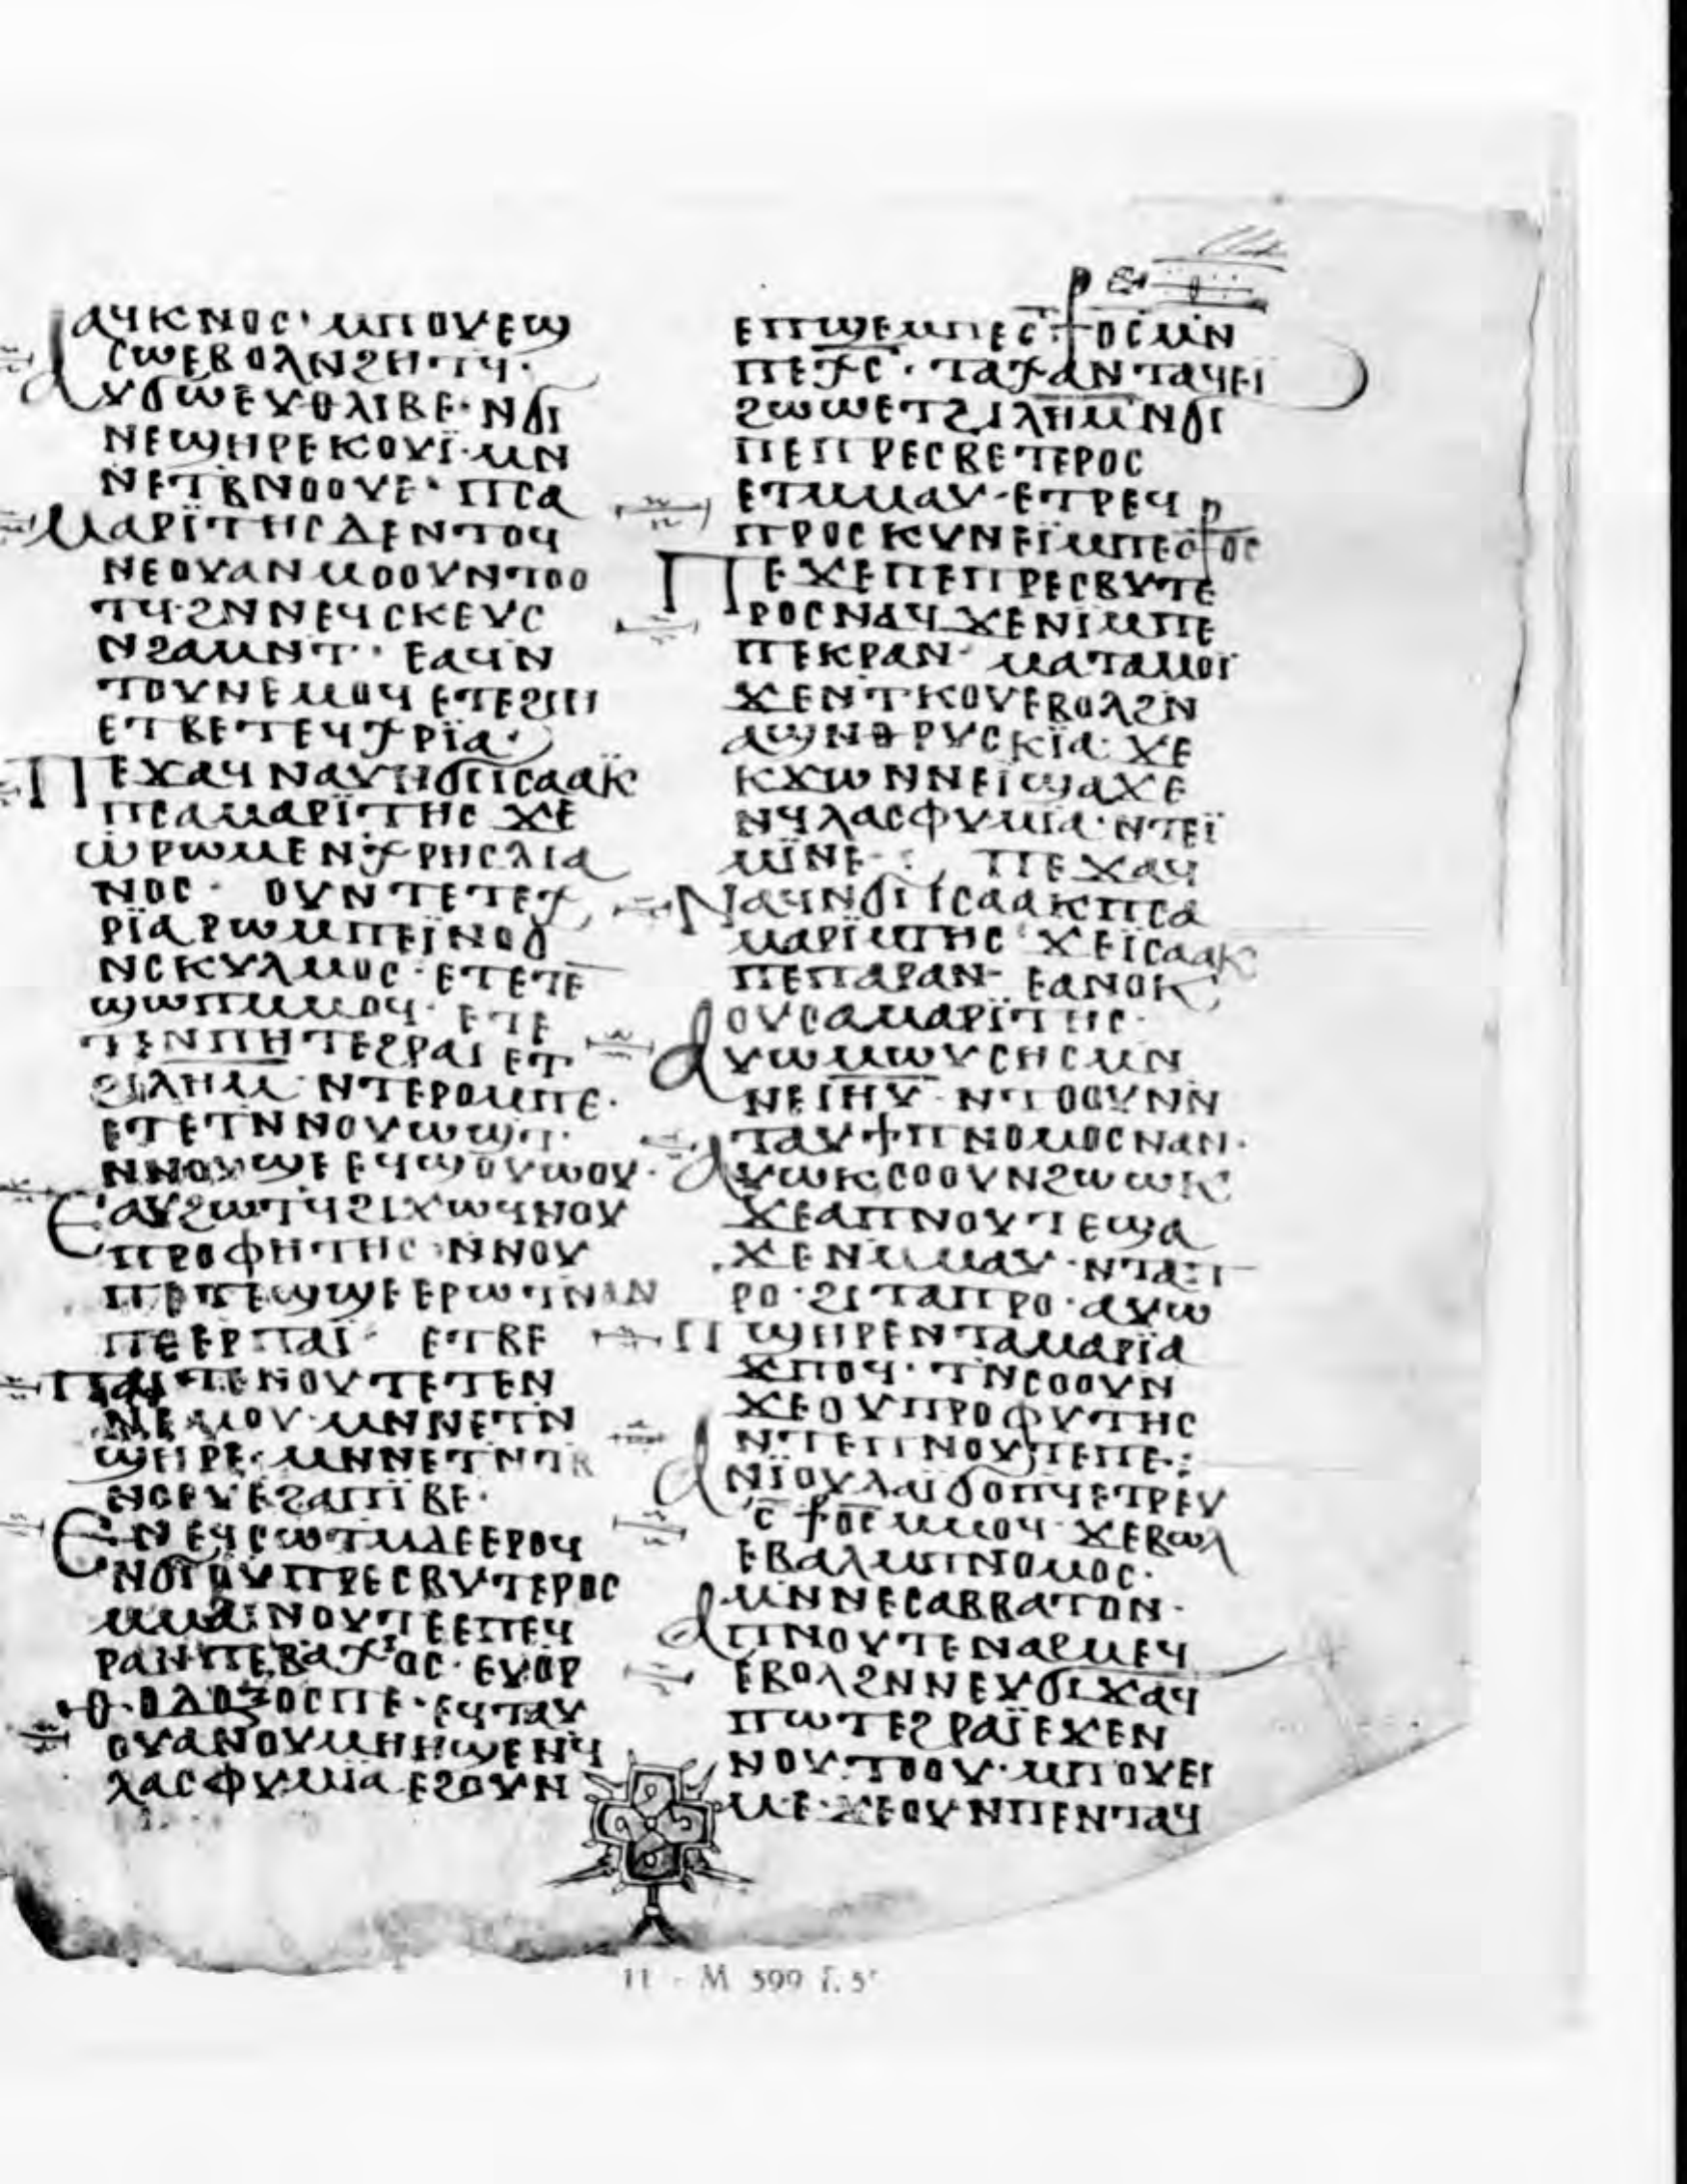 ⲁϥⲕⲛⲟⲥ· ⲙⲡⲟⲩⲉϣ
ⲥⲱⲉⲃⲟⲗⲛϩⲏⲧϥ·
ⲁⲩϭⲱⲉⲩⲑⲗⲓⲃⲉ·ⲛϭⲓ
ⲛⲉϣⲏⲣⲉⲕⲟⲩⲓ̈·ⲙⲛ
ⲛⲉⲧⲃⲛⲟⲟⲩⲉ· ⲡⲥⲁ
ⲙⲁⲣⲓ̈ⲧⲏⲥⲇⲉⲛⲧⲟϥ
ⲛⲉⲟⲩⲁⲛⲙⲟⲟⲩⲛⲧⲟⲟ
ⲧϥ·ϩⲛⲛⲉϥⲥⲕⲉⲩⲥ
ⲛϩⲁⲙⲛⲧ· ⲉⲁϥⲛ
ⲧⲟⲩⲛⲉⲙⲟϥⲉⲧⲉϩⲓⲏ
ⲉⲧⲃⲉⲧⲉϥⲭⲣⲓ̈ⲁ·
ⲡⲉϫⲁϥⲛⲁⲩⲛϭⲓⲓⲥⲁⲁⲕ
ⲡⲥⲁⲙⲁⲣⲓ̈ⲧⲏⲥ ϫⲉ
ⲱⲣⲱⲙⲉⲛⲭⲣⲏⲥⲗⲓⲁ
ⲛⲟⲥ· ⲟⲩⲛⲧⲉⲧⲉⲭ
ⲣⲓ̈ⲁⲣⲱⲙⲡⲉⲓ̈ⲛⲟϭ
ⲛⲥⲕⲩⲗⲙⲟⲥ·ⲉⲧⲉⲧⲉ
ϣⲱⲡⲙⲙⲟϥ· ⲉⲧⲉ
ⲧⲉⲛⲡⲏⲧⲉϩⲣⲁⲓ ⲉⲧ
ϩⲓⲗⲏⲙ·ⲛⲧⲉⲣⲟⲙⲡⲉ·
ⲉⲧⲉⲧⲛⲛⲟⲩⲱϣⲧ·
ⲛⲛⲟⲩϣⲉⲉϥϣⲟⲩⲱⲟⲩ·
ⲉⲁⲩϩⲱⲧϥϩⲓϫⲱϥⲛⲟⲩ
ⲡⲣⲟⲫⲏⲧⲏⲥ·ⲛⲛⲟⲩ
ⲡⲉⲧⲉϣϣⲉⲉⲣⲱⲧⲛⲁⲛ
ⲡⲉⲉⲣⲡⲁⲓ̈· ⲉⲧⲃⲉ
ⲡⲁⲓⲧⲉⲛⲟⲩⲧⲉⲧⲉⲛ
ⲛⲉⲙⲟⲩ·ⲙⲛⲛⲉⲧⲛ
ϣⲏⲣⲉ·ⲙⲛⲛⲉⲧⲛⲧⲃ
ⲛⲟⲟⲩⲉϩⲁⲡⲓ̈ⲃⲉ·
ⲉⲛⲉϥⲥⲱⲧⲙⲇⲉⲉⲣⲟϥ
ⲛϭⲓⲟⲩⲡⲣⲉⲥⲃⲩⲧⲉⲣⲟⲥ
ⲙⲙⲁⲓⲛⲟⲩⲧⲉⲉⲡⲉϥ
ⲣⲁⲛⲡⲉⲃⲁⲭⲟⲥ·ⲉⲩⲟⲣ
ⲑⲟⲇⲟⲝⲟⲥⲡⲉ·ⲉϥⲧⲁⲩ
ⲟⲩⲁⲛⲟⲩⲙⲏⲏϣⲉⲛϥ
ⲗⲁⲥⲫⲩⲙⲓⲁ·ⲉϩⲟⲩⲛ
ⲉⲡϣⲉⲙⲡⲉⲥ⳨ⲟⲥⲙⲛ
ⲡⲉⲭⲥ· ⲧⲁⲭⲁⲛⲧⲁϥⲉⲓ
ϩⲱⲱⲉⲧϩⲓⲗⲏⲙⲛϭⲓ
ⲡⲉⲡⲣⲉⲥⲃⲉⲧⲉⲣⲟⲥ
ⲉⲧⲙⲙⲁⲩ·ⲉⲧⲣⲉϥ
ⲡⲣⲟⲥⲕⲩⲛⲉⲓ̈ⲙⲡⲉⲥ⳨ⲟⲥ
ⲡⲉϫⲉⲡⲉⲡⲣⲉⲥⲃⲩⲧⲉ
ⲣⲟⲥⲛⲁϥ ϫⲉⲛⲓⲙⲡⲉ
ⲡⲉⲕⲣⲁⲛ· ⲙⲁⲧⲁⲙⲟⲓ̈
ϫⲉⲛⲧⲕⲟⲩⲉⲃⲟⲗϩⲛ
ⲁϣⲛⲑⲣⲩⲥⲕⲓ̈ⲁ· ϫⲉ
ⲕϫⲱⲛⲛⲉⲓ̈ϣⲁϫⲉ
ⲛϥⲗⲁⲥⲫⲩⲙⲓⲁ·ⲛⲧⲉⲓ̈
ⲙⲓ̈ⲛⲉ·: ⲡⲉϫⲁϥ
ⲛⲁϥⲛϭⲓⲓⲥⲁⲁⲕⲡⲥⲁ
ⲙⲁⲣⲓ̈ⲙⲧⲏⲥ· ϫⲉⲓ̈ⲥⲁⲁⲕ
ⲡⲉⲡⲁⲣⲁⲛ· ⲉⲁⲛⲟⲕ
ⲟⲩⲥⲁⲙⲁⲣⲓ̈ⲧⲏⲥ·
ⲁⲩⲱⲙⲱⲩⲥⲏⲥⲙⲛ
ⲛⲉⲓⲏⲩ·ⲛⲧⲟⲟⲩⲛⲛ
ⲧⲁⲩϯⲡⲛⲟⲙⲟⲥⲛⲁⲛ·
ⲁⲩⲱⲕⲥⲟⲟⲩⲛϩⲱⲱⲕ
ϫⲉⲁⲡⲛⲟⲩⲧⲉϣⲁ
ϫⲉⲛⲙⲙⲁⲩ·ⲛⲧⲁⲡ
ⲣⲟ·ϩⲓⲧⲁⲡⲣⲟ·ⲁⲩⲱ
ⲡϣⲏⲣⲉⲛⲧⲁⲙⲁⲣⲓ̈ⲁ
ϫⲡⲟϥ·ⲧⲛⲥⲟⲟⲩⲛ
ϫⲉⲟⲩⲡⲣⲟⲫⲩⲧⲏⲥ
ⲛⲧⲉⲡⲛⲟⲩⲧⲉⲡⲉ·:
ⲁⲛⲓ̈ⲟⲩⲇⲁⲓ̈ϭⲟⲡϥⲉⲧⲣⲉⲩ
ⲥ⳨ⲟⲥⲙⲙⲟϥ·ϫⲉⲃⲱⲗ
ⲉⲃⲁⲗⲙⲡⲓⲛⲟⲙⲟⲥ·
ⲙⲛⲛⲉⲥⲁⲃⲃⲁⲧⲟⲛ·
ⲁⲡⲛⲟⲩⲧⲉⲛⲁϩⲙⲉϥ
ⲉⲃⲟⲗϩⲛⲛⲉⲩϭⲓϫⲁϥ
ⲡⲱⲧⲉϩⲣⲁⲓ̈ⲉϫⲉⲛ
ⲛⲟⲩⲧⲟⲟⲩ·ⲙⲡⲟⲩⲉⲓ
ⲙⲉ·ϫⲉⲟⲩⲛⲡⲉⲛⲧⲁϥ
11 - M 599 f. 5ʳ